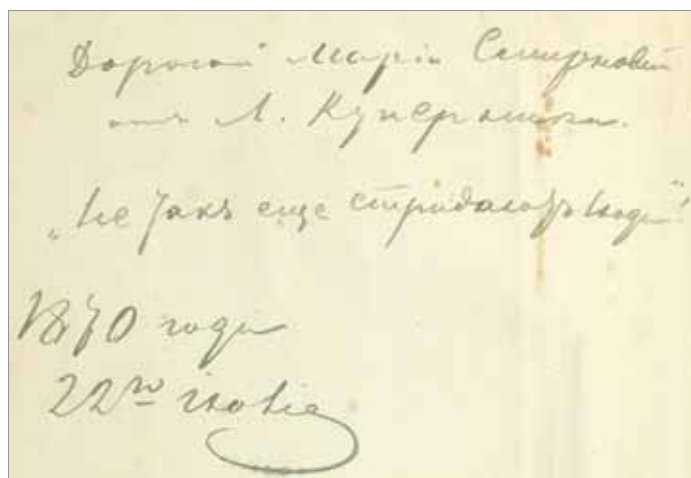 Дорогой Маріи Смирновой
отъ Л. Куперника.
„Не такъ еще страдаютъ люди“
1870 года
22го іюля